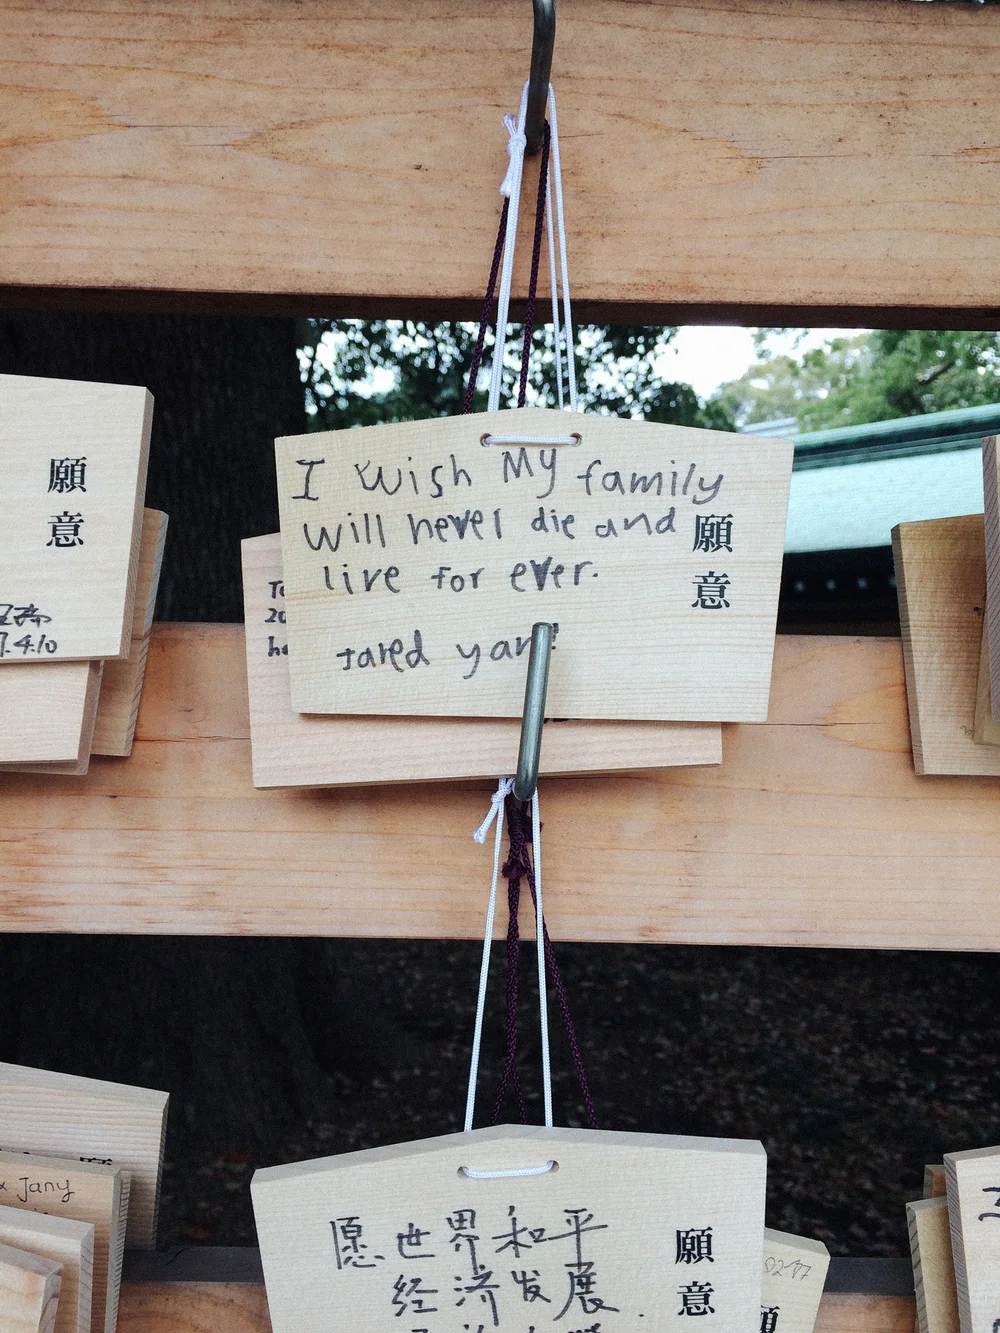 願
意
7.4.10
I wish My family
will never die and
live for ever.
願
意
To
20
ha
Jany
愿世界和平
经济发展
願
意
願